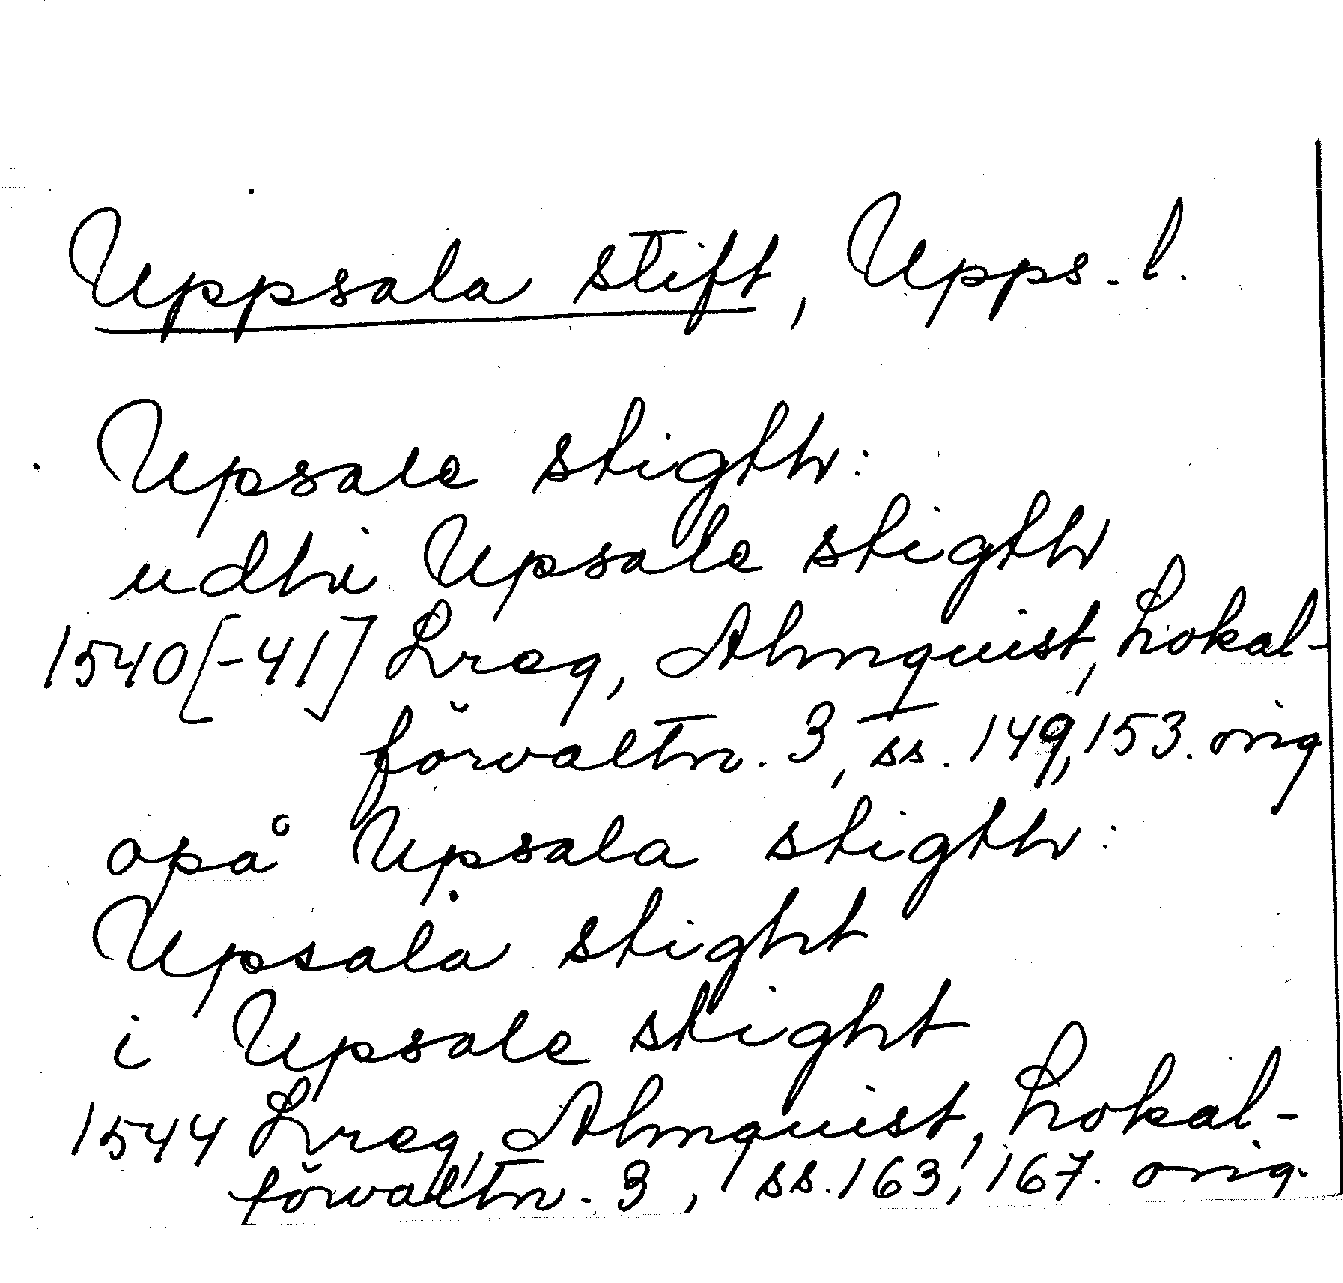 Uppsala stift, Upps. l.
Upsale stigth:
udhi Upsale stigth
1540[-41] Lreg, Almquist, Lokal-
förvaltn. 3, ss. 149, 153. orig
opå Upsala stigth:
Upsala stight
i Upsale stight
1544 Lreg, Almquist, Lokal-
förvaltn. 3, ss. 163, 167. orig.